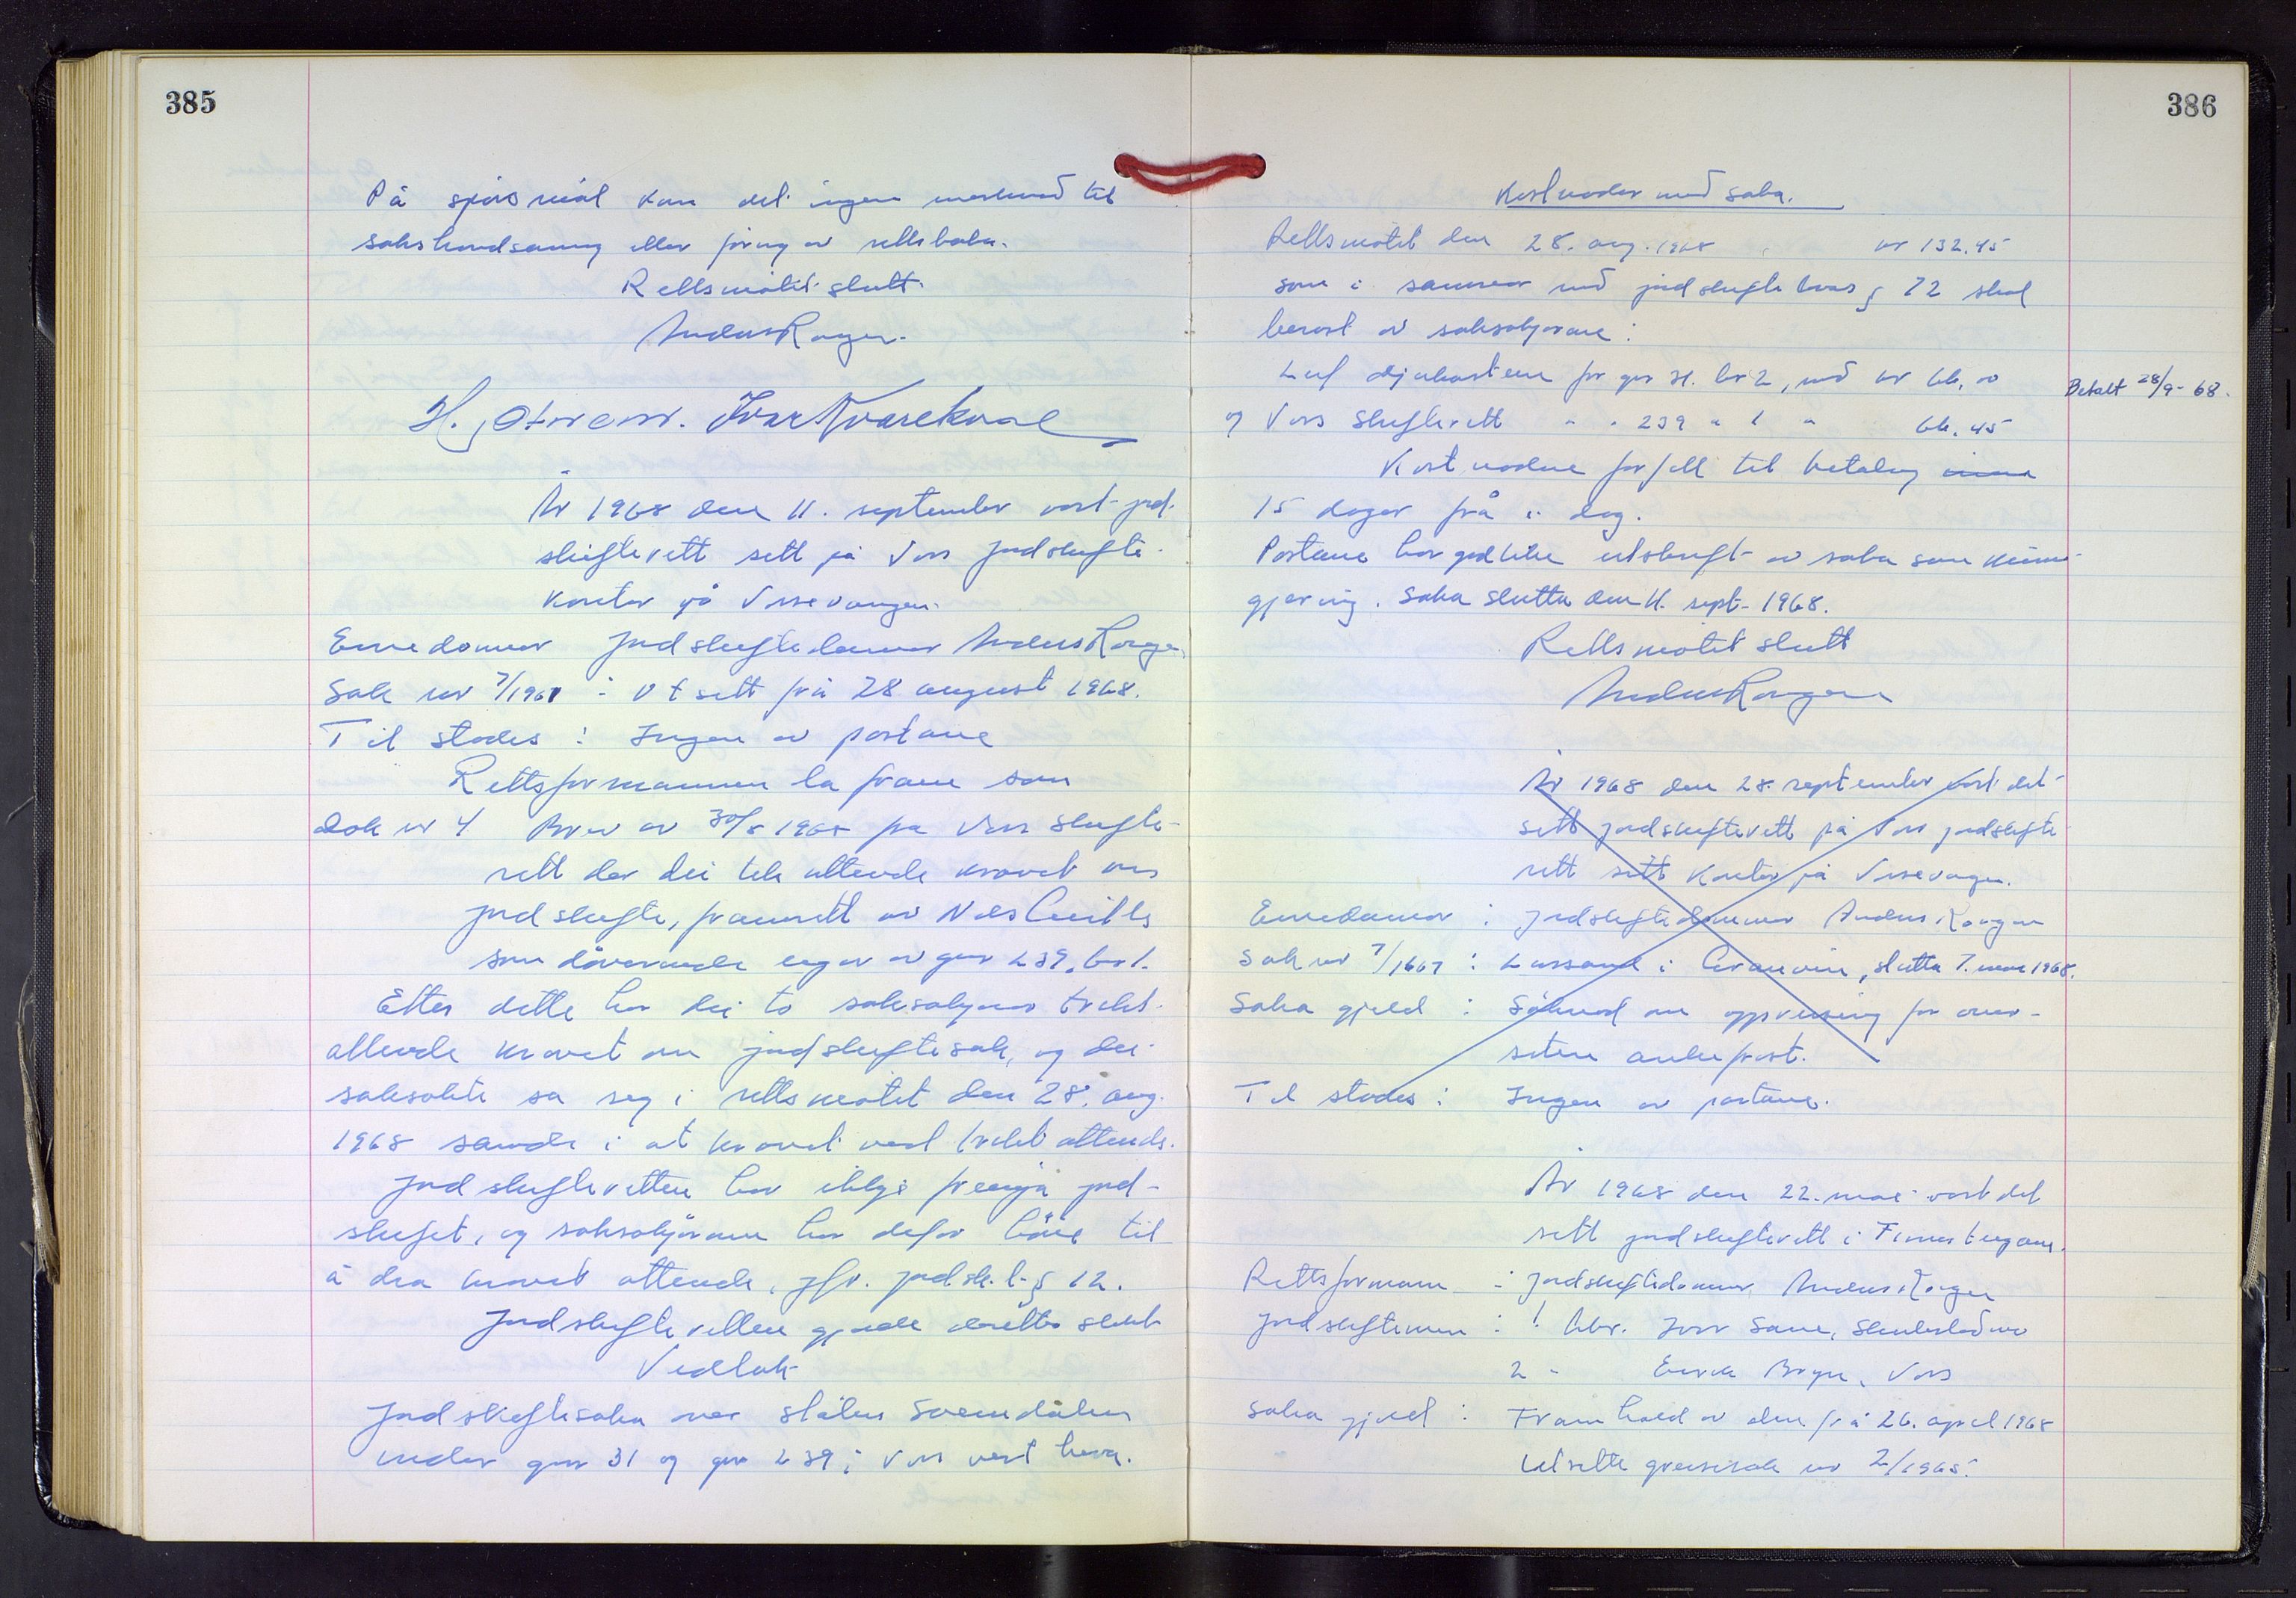 385
På spörsmål kom det ingen merknad til
sakshandsaming eller föring av rettsboka.
Rettsmötet slutt.
Anders Ronger.
H. Ivar Kvarekval
År 1968 den 11. september vart jord-
skifterett sett på Voss jordskifte-
kontor på Vossevangen.
Einedommar Jordskiftedommar Anders Ronge
Sak nr 7/1967 : Utsett frå 28 august 1968.
Til stades : Ingen av partane
Rettsformannen la fram som
dok nr 4 Brev av 30/8 1968 frå Voss skifte-
rett der dei tek attende kravet om
jordskifte, framsett av Nils
som dåverande eigar av gnr 239, bnr 1.
Etter dette har dei to saksökjarar trekt
attende kravet om jordskiftesak, og dei
saksökte sa seg i rettsmötet den 28. aug.
1968 samde i at kravet vart trekt attende.
Jordskifteretten har ikkje fremja jord-
skiftet, og saksökjarane har difor höve til
å dra kravet attende, jfr. jordsk. l. § 12.
Jordskifteretten gjorde deretter slikt
Vedtak
Jordskiftesaka over stölen Svemdalen
under gnr 31 og gnr 239 i Voss vert heva.
386
Kostnader med saka.
Rettsmötet den 28. aug. 1968 kr 132.45
som i samsvar med jordskiftelova § 72 skal
berast av saksökjarane :
Leif for gnr 31. bnr 2, med kr 66.00
og Voss Skifterett " " 239 " 1 " 66.45
Betalt 28/9-68.
Kostnadene forfell til betaling innan
15 dagar frå i dag.
Partane har godteke utskrift av saka som kunn-
gjering. Saka slutta den 11. sept. 1968.
Rettsmötet slutt
Anders Ronger
År 1968 den 28. september vart det
sett jordskifterett på Voss jordskifte
rett sitt kontor på Vossevangen.
Einedommar : Jordskiftedommar Anders Ronger
Sak nr 7/1967 : i Granvin, slutta 7. 1968.
Saka gjeld : Söknad om oppreising for over-
seten ankefrist.
Til stades : Ingen av partane.
År 1968 den 22. mai vart det
sett jordskifterett i
Rettsformann : Jordskiftedommar Anders Ronger
Jordskiftemenn : 1 Gbr. Ivar
2 " Voss
Saka gjeld : Framhald av den frå 26. april 1968
utsette grensesak nr 2/1965.